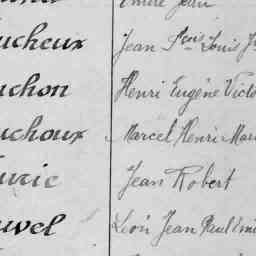 Emile Jean
ucheux Jean Louis
uchon Henri Eugène Victo
uchoux Marcel Henri Mau
urie Jean Robert
uvel Léon Jean Paul Emi